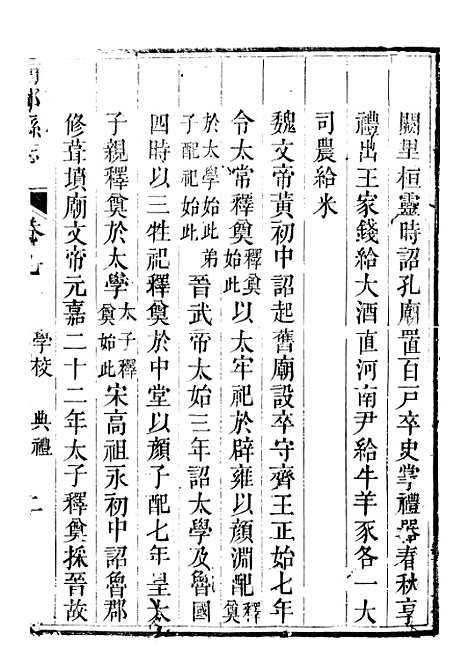 闕里桓靈時詔孔廟置百戶卒史掌禮器春秋享
禮出王家錢給大酒直河南尹給牛羊豕各一大
司農給米
魏文帝黃初中詔起舊廟設卒守齊王正始七年
令太常釋奠釋奠始此以太牢祀於辟雍以顏淵配釋奠
於太學始此弟子配祀始此晉武帝太始三年詔太學及魯國
四時以三牲祀釋奠於中堂以顏子配七年皇太
子親釋奠於太學太子釋奠始此宋高祖永初中詔魯郡
修葺墳廟文帝元嘉二十二年太子釋奠採晉故
縣志
卷七
學校 典禮 二